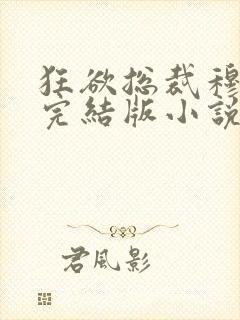 狂欲总裁穆
完結版小說
君風影